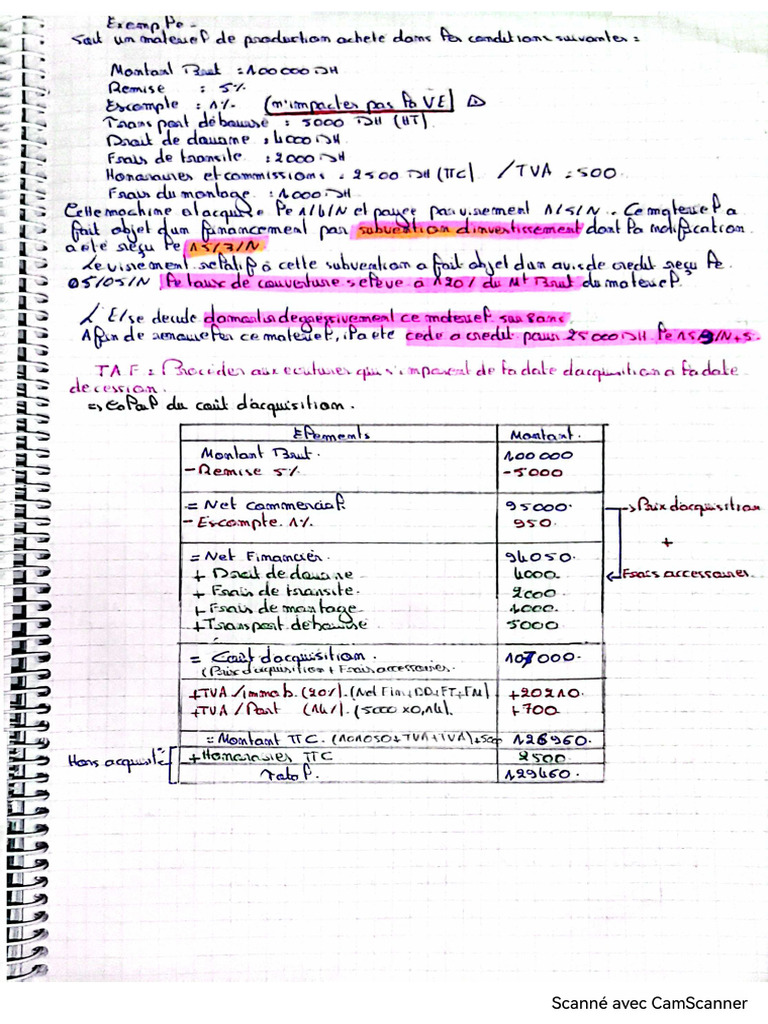 Exemple -
Soit un materiel de production acheté dans les conditions suivantes :
Montant Brut : 100 000 DH
Remise : 5%
Escompte : 1% (n'impacter pas la VE)
Transport débourse : 5000 DH (HT).
Droit de douane : 4000 DH.
Frais de transite : 2000 DH
Honoraires et commissions : 2500 DH (TTC) / TVA = 500
Frais du montage : 1000 DH
Cette machine a acquise le 1/6/N et payée par virement 1/5/N. Ce materiel a
fait objet d'un financement par subvention d'investissement dont la notification
a été reçu le 15/3/N
Le virement relatif à cette subvention a fait objet d'un avis de credit reçu le
05/05/N le taux de couverture s'elève à 120/ du Mt Brut du materiel.
L'E/se decide d'amortis degressivement ce materiel sur 8 ans
Afin de renouveler ce materiel, il a été cédé a credit pour 25000 DH le 15/9/N+5.
TAF : Procéder aux ecritures qui s'imposent de la date d'acquisition a la date
de cession.
=> calcul du cout d'acquisition.
Elements Montant.
Montant Brut. 100 000
- Remise 5% -5000
= Net commercial 95000. → Prix d'acquisition
- Escompte 1% 950. +
= Net Financier. 94050.
+ Droit de douane 4000 Frais accessoires.
+ Frais de transite. 2000
+ Frais de montage 1000
+ Transport débourse 5000
= Coût d'acquisition. 107000.
(Prix d'acquisition + Frais accessoires.
+ TVA/immob. (20%). (Net Fin+DD+FT+FM) +20210.
+ TVA/Port (14%). (5000 x0,14). +700
= Montant TTC. (101050+TVA+TVA)+5000 126960.
Hors acquisité + Honoraires TTC 2500.
Total. 129460.
Scanné avec CamScanner